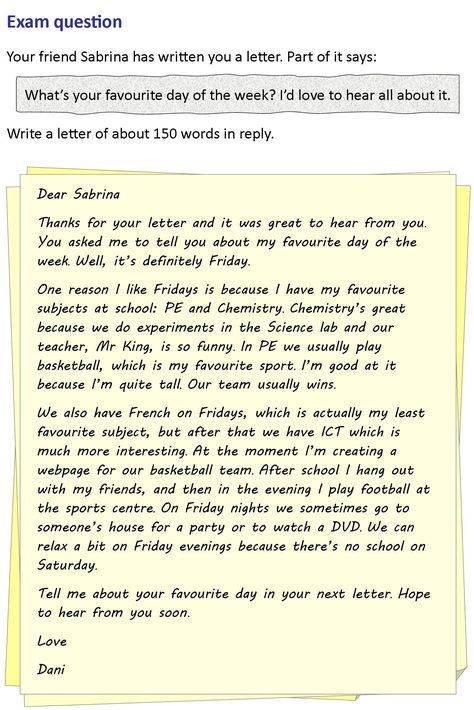 Exam question
Your friend Sabrina has written you a letter. Part of it says:
What's your favourite day of the week? I'd love to hear all about it.
Write a letter of about 150 words in reply.
Dear Sabrina
Thanks for your letter and it was great to hear from you.
You asked me to tell you about my favourite day of the
week. Well, it's definitely Friday.
One reason I like Fridays is because I have my favourite
subjects at school: PE and Chemistry. Chemistry's great
because we do experiments in the Science lab and our
teacher, Mr King, is so funny. In PE we usually play
basketball, which is my favourite sport. I'm good at it
because I'm quite tall. Our team usually wins.
We also have French on Fridays, which is actually my least
favourite subject, but after that we have ICT which is
much more interesting. At the moment I'm creating a
webpage for our basketball team. After school I hang out
with my friends, and then in the evening I play football at
the sports centre. On Friday nights we sometimes go to
someone's house for a party or to watch a DVD. We can
relax a bit on Friday evenings because there's no school on
Saturday.
Tell me about your favourite day in your next letter. Hope
to hear from you soon.
Love
Dani